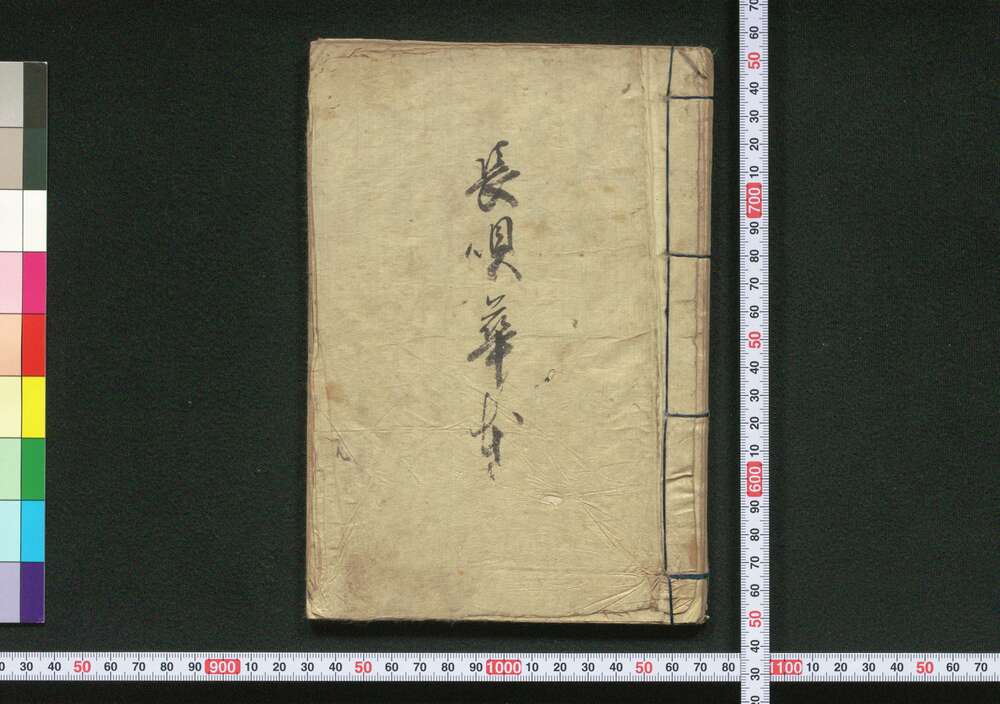 長唄華本
70 60 50 40 30 20 10 700 90 80 70 60 50 40 30 20 10 600 90 80 70 60 50 40 30 20
30 40 50 60 70 80 90 900 10 20 30 40 50 60 70 80 90 1000 10 20 30 40 50 60 70 80 1100 10 20 30 40 50 60 70